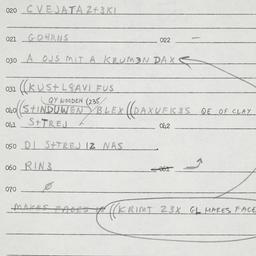 020 CVEJATA Z+3KI
021 GOHRNS 022 —
030 A OJS MIT A KRUM3N DAX
031 ((KUS+L9AVI FUS
QY WOODEN (235/
040 ((S+INDUWEN/BLEX ((DAXUFK35 QE OF CLAY
041 S+TREJ 042
050 DI S+TREJ IZ NAS
060 RIN3 061
070 ø
MAKES FACES ((KRIMT Z3X GL MAKES FACE